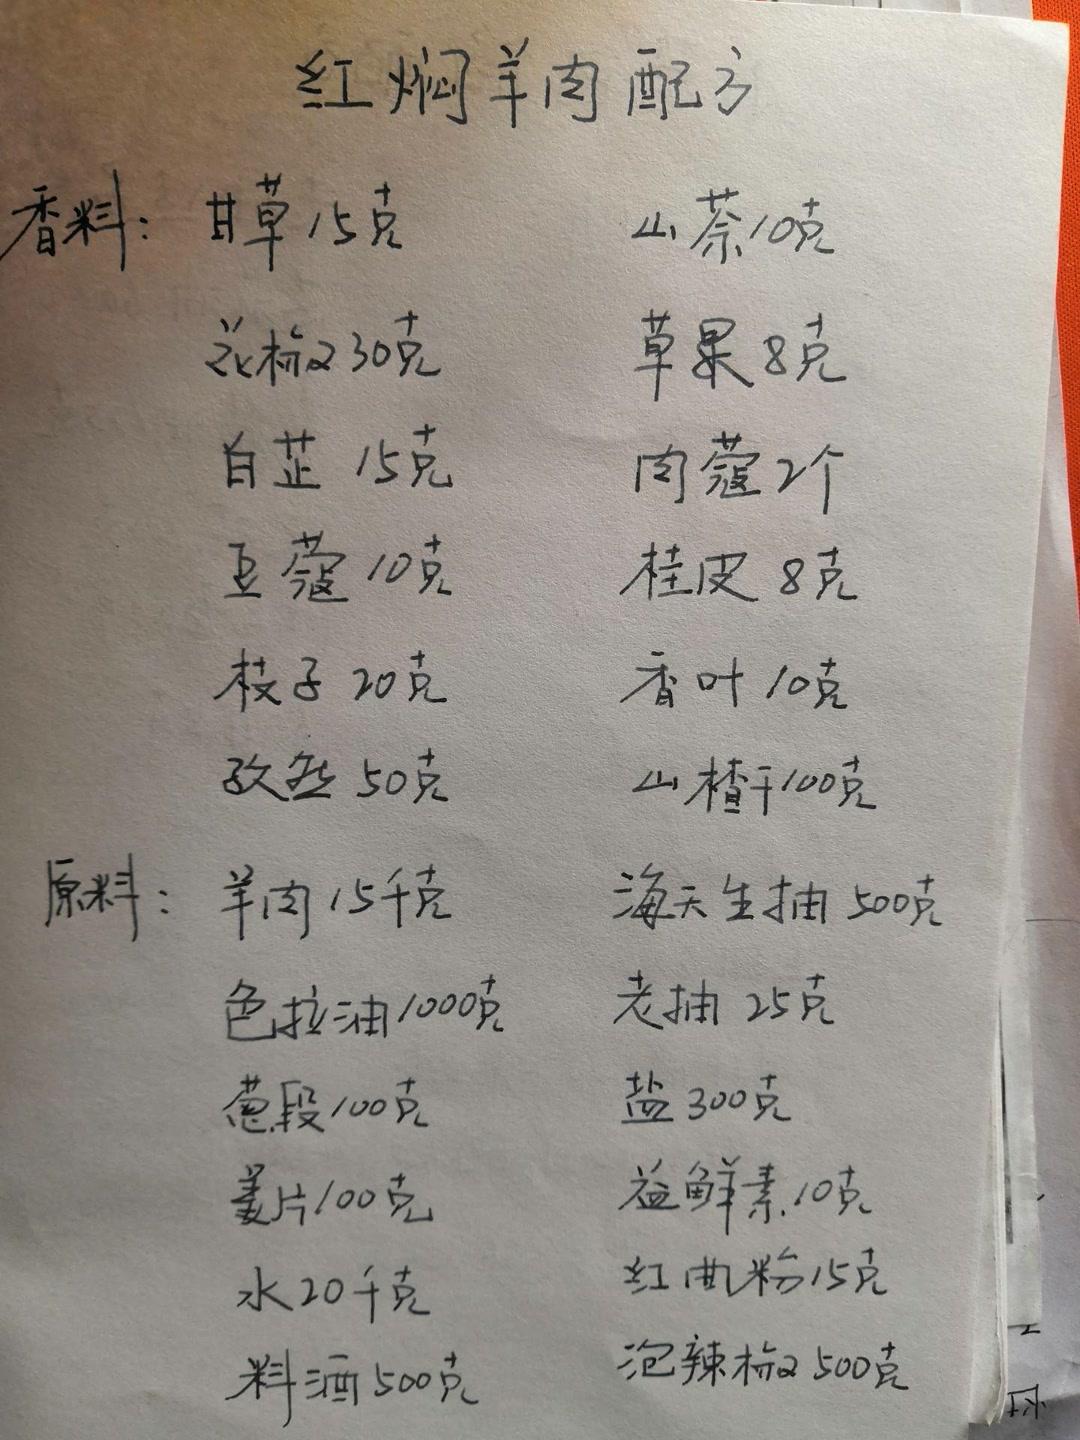 红焖羊肉配方
香料：甘草15克 山萘10克
花椒30克 草果8克
白芷 15克 肉蔻2个
豆蔻 10克 桂皮 8克
枝子 20克 香叶 10克
孜然 50克 山楂干100克
原料：羊肉15千克 海天生抽 500克
色拉油1000克 老抽 25克
葱段100克 盐300克
姜片100克 益鲜素10克
水20千克 红曲粉15克
料酒500克 泡辣椒500克